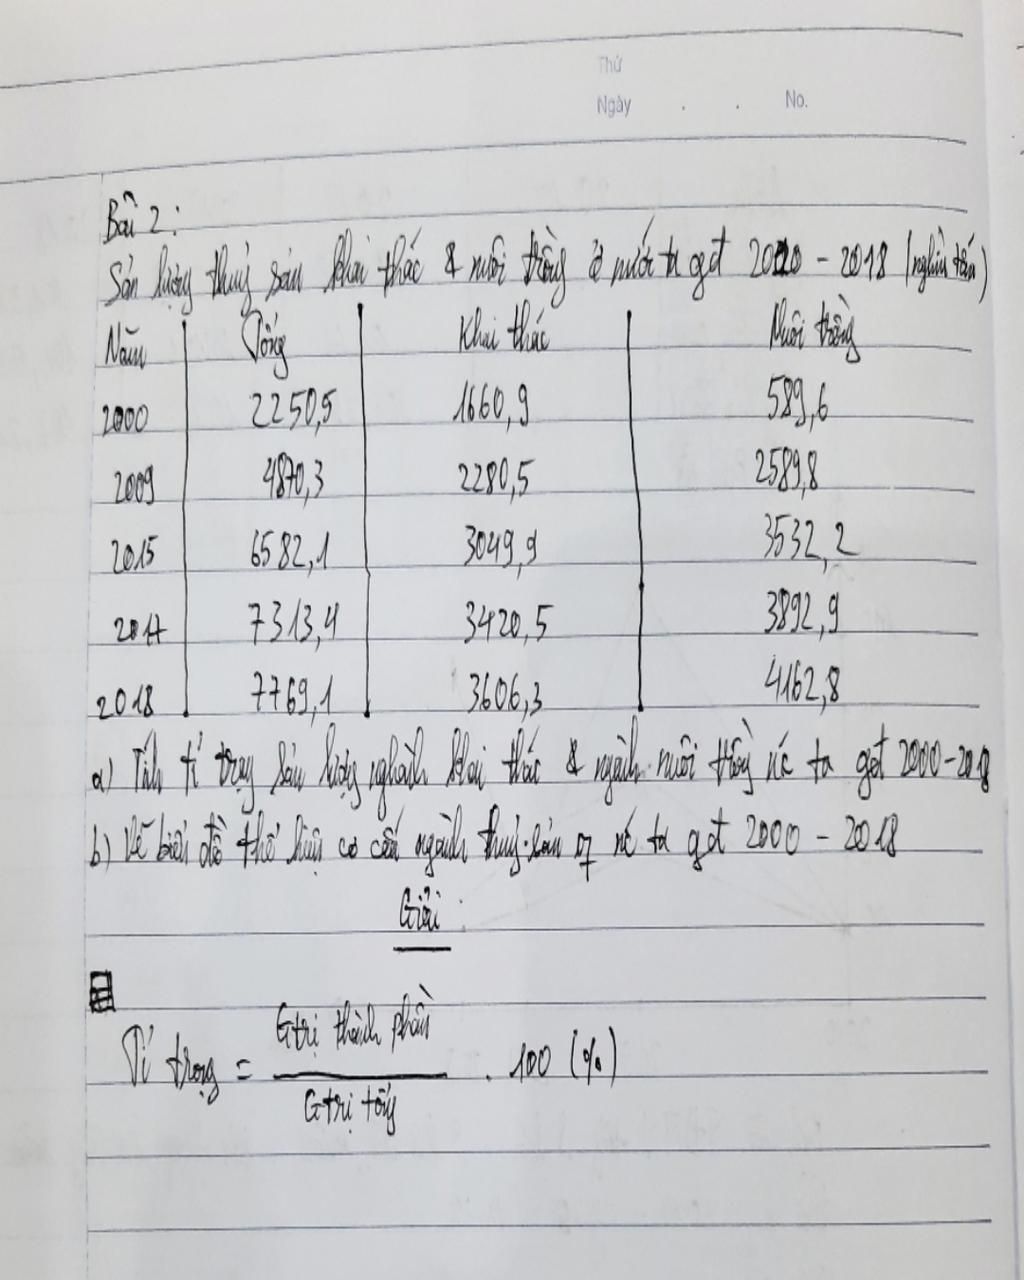 Thứ
Ngày . . No.
Bài 2:
Sản lượng thuỷ sản khai thác & nuôi trồng ở nước ta gđt 2000 - 2018 (nghìn tấn)
Năm Tổng Khai thác Nuôi trồng
2000 2250,5 1660,9 589,6
2009 4870,3 2280,5 2589,8
2015 6582,1 3049,9 3532,2
2017 7313,4 3420,5 3892,9
2018 7769,1 3606,3 4162,8
a) Tính tỉ trọng sản lượng nghành khai thác & ngành nuôi trồng nc ta gđt 2000-2018
b) Vẽ biểu đồ thể hiện cơ cấu ngành thuỷ sản of nc ta gđt 2000 - 2018
Giải:
Tỉ trọng = Gtrị thành phần / Gtrị tổng . 100 (%)